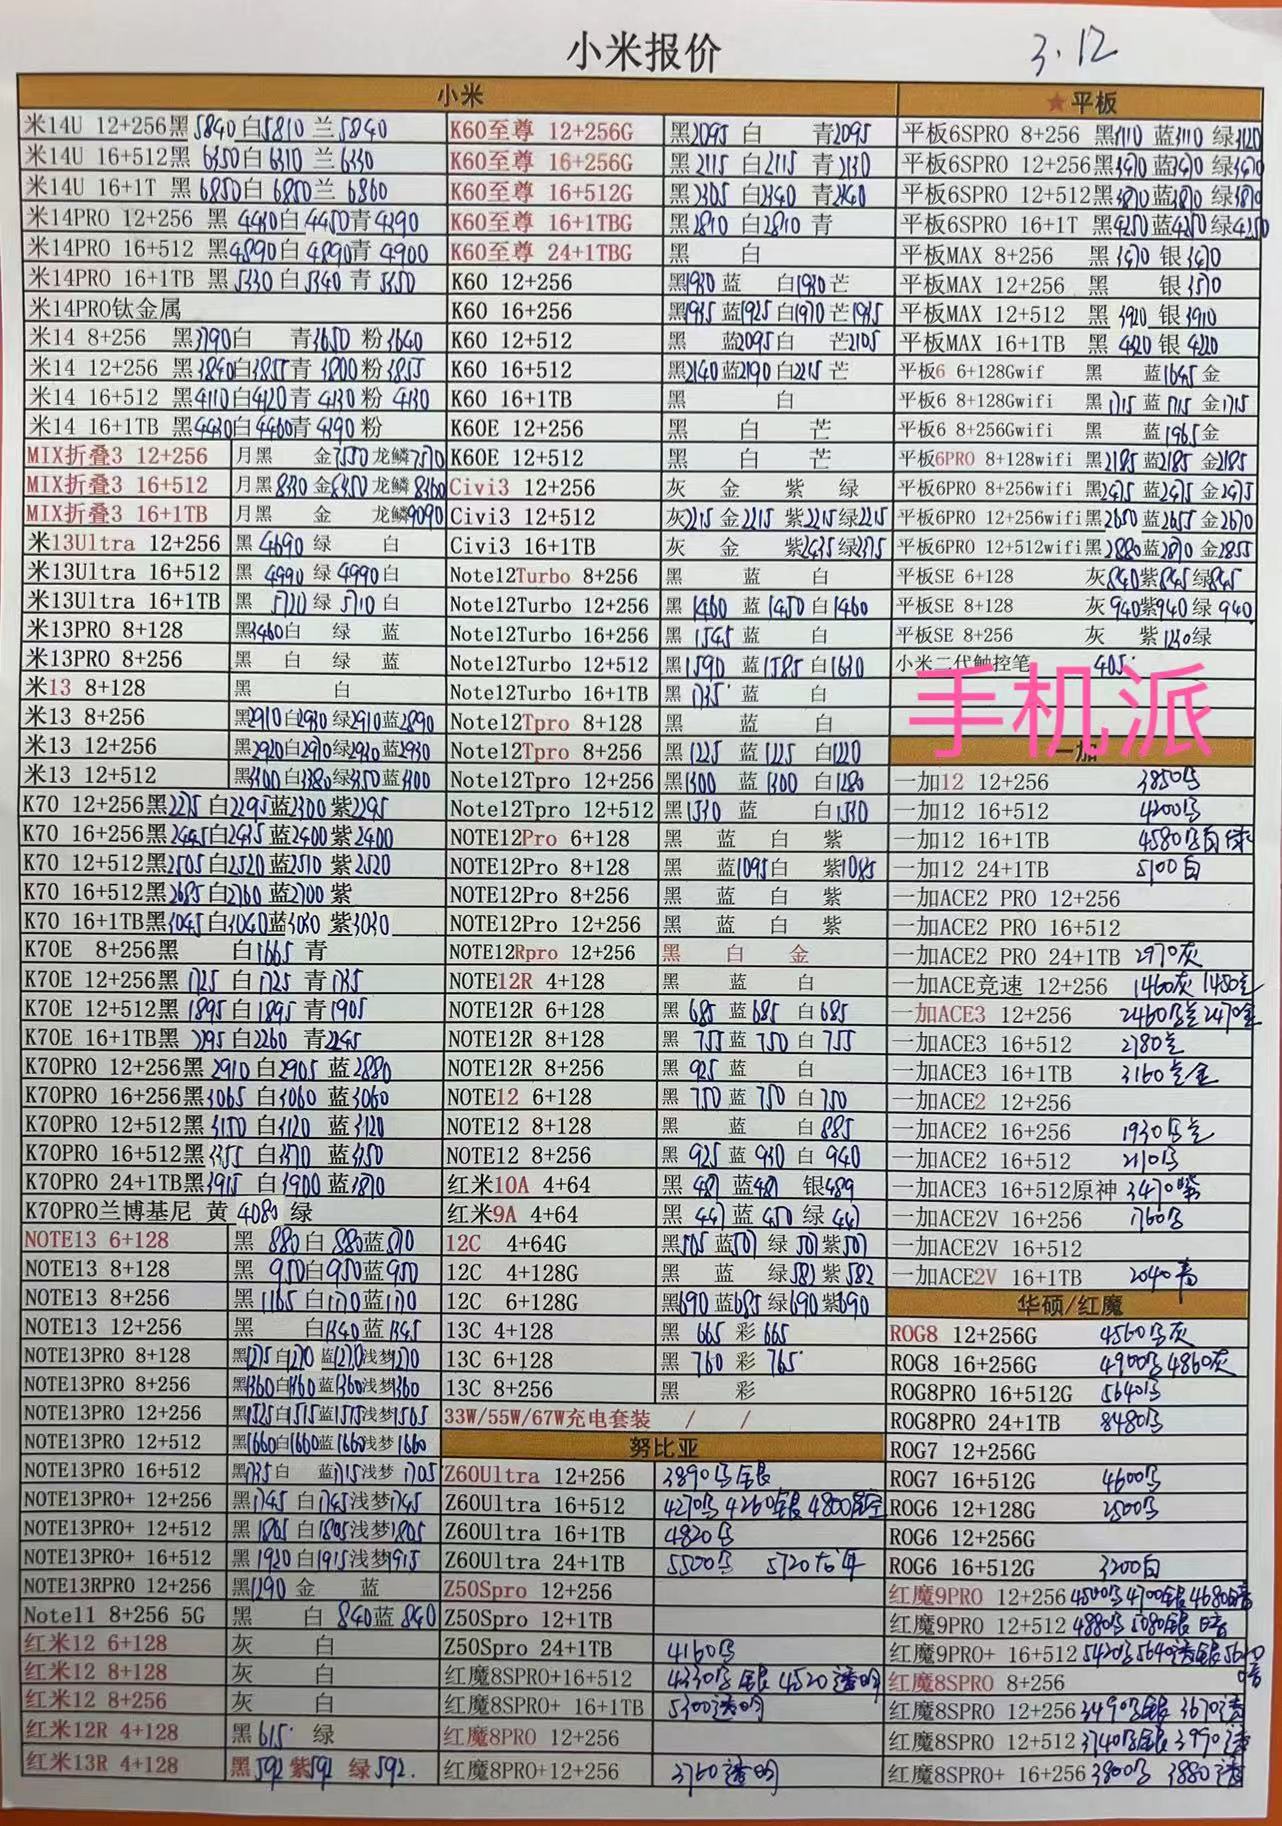 小米报价
3.12
小米
米14U 12+256黑5840白5810 兰5840
米14U 16+512黑 6350白6310 兰6330
米14U 16+1T 黑 6850白 6850兰 6860
米14PRO 12+256 黑 白4450青4390
米14PRO 16+512 黑4890白4890青4900
米14PRO 16+1TB 黑5330白5340 青
米14PRO钛金属
米14 8+256 黑 白 青3650 粉3640
米14 12+256 黑3840白3855青3800粉3855
米14 16+512 黑4110白4120青4130粉 4130
米14 16+1TB 黑4430白4460青4390粉
MIX折叠3 12+256 月黑 金7550龙鳞7570
MIX折叠3 16+512 月黑8330金 龙鳞
MIX折叠3 16+1TB 月黑 金 龙鳞9090
米13Ultra 12+256 黑 4690 绿 白
米13Ultra 16+512 黑 4990 绿 4990白
米13Ultra 16+1TB 黑 绿 5710白
米13PRO 8+128 黑3460白 绿 蓝
米13PRO 8+256 黑 白 绿 蓝
米13 8+128 黑 白
米13 8+256 黑2910白2930绿2910蓝2890
米13 12+256 黑2920白2970绿2930蓝2930
米13 12+512 黑 白 绿 蓝
K70 12+256黑2275 白2295蓝2300紫2295
K70 16+256黑2445白2435蓝2400紫2400
K70 12+512黑2505白2520蓝2510 紫2520
K70 16+512黑2685白2760蓝2700紫
K70 16+1TB黑3045白3040蓝3030 紫3030
K70E 8+256黑 白1665 青
K70E 12+256黑 1725 白1725 青1735
K70E 12+512黑 1895白1895 青1905
K70E 16+1TB黑 白2260 青2245
K70PRO 12+256黑 2910 白2905 蓝2880
K70PRO 16+256黑3065 白3060 蓝3060
K70PRO 12+512黑3150白3120 蓝3120
K70PRO 16+512黑 白 蓝
K70PRO 24+1TB黑3915 白3900 蓝3870
K70PRO兰博基尼 黄 4080 绿
NOTE13 6+128 黑 880白 880蓝870
NOTE13 8+128 黑 950白950蓝950
NOTE13 8+256 黑1165 白1170蓝1170
NOTE13 12+256 黑 白1340蓝1345
NOTE13PRO 8+128 黑1275白1270蓝1270浅梦1270
NOTE13PRO 8+256 黑1360白1360蓝1360浅梦1360
NOTE13PRO 12+256 黑1525白1515蓝1515浅梦1505
NOTE13PRO 12+512 黑1660白1660蓝1660浅梦1660
NOTE13PRO 16+512 黑1735白 蓝1715浅梦 1705
NOTE13PRO+ 12+256 黑1745 白1745浅梦1745
NOTE13PRO+ 12+512 黑1805 白1805浅梦1805
NOTE13PRO+ 16+512 黑1920白1915浅梦1915
NOTE13RPRO 12+256 黑 金 蓝
Note11 8+256 5G 黑 白 840蓝 840
红米12 6+128 灰 白
红米12 8+128 灰 白
红米12 8+256 灰 白
红米12R 4+128 黑615 绿
红米13R 4+128 黑592 紫592 绿592.
K60至尊 12+256G 黑2095 白 青2095
K60至尊 16+256G 黑2115 白2115 青2130
K60至尊 16+512G 黑2305 白2340 青2340
K60至尊 16+1TBG 黑2810 白2810 青
K60至尊 24+1TBG 黑 白
K60 12+256 黑1930蓝 白1930芒
K60 16+256 黑1935蓝1925白1970芒1935
K60 12+512 黑 蓝2095白 芒2105
K60 16+512 黑2140蓝2190白2215芒
K60 16+1TB 黑 白
K60E 12+256 黑 白 芒
K60E 12+512 黑 白 芒
Civi3 12+256 灰 金 紫 绿
Civi3 12+512 灰2215金2215 紫2215绿2215
Civi3 16+1TB 灰 金 紫2435绿2375
Note12Turbo 8+256 黑 蓝 白
Note12Turbo 12+256 黑 1460 蓝1450白1460
Note12Turbo 16+256 黑 1545 蓝 白
Note12Turbo 12+512 黑1590 蓝1585白1630
Note12Turbo 16+1TB 黑 1735 蓝 白
Note12Tpro 8+128 黑 蓝 白
Note12Tpro 8+256 黑 1225 蓝1225 白1220
Note12Tpro 12+256 黑1300 蓝 1300 白1280
Note12Tpro 12+512 黑1530 蓝 白1530
NOTE12Pro 6+128 黑 蓝 白 紫
NOTE12Pro 8+128 黑 蓝1095白 紫1085
NOTE12Pro 8+256 黑 蓝 白 紫
NOTE12Pro 12+256 黑 蓝 白 紫
NOTE12Rpro 12+256 黑 白 金
NOTE12R 4+128 黑 蓝 白
NOTE12R 6+128 黑 685 蓝 685 白685
NOTE12R 8+128 黑 755 蓝 750 白 755
NOTE12R 8+256 黑 925 蓝 白
NOTE12 6+128 黑 750 蓝 750 白750
NOTE12 8+128 黑 蓝 白885
NOTE12 8+256 黑 925 蓝 930 白 940
红米10A 4+64 黑 487 蓝487 银489
红米9A 4+64 黑 447 蓝 450 绿 447
12C 4+64G 黑505 蓝507 绿 507紫507
12C 4+128G 黑 蓝 绿582紫582
12C 6+128G 黑690蓝685绿690紫690
13C 4+128 黑 665 彩 665
13C 6+128 黑 760 彩 765
13C 8+256 黑 彩
33W/55W/67W充电套装 / /
努比亚
Z60Ultra 12+256 3890乌银
Z60Ultra 16+512 4270乌 4260银 4800星空
Z60Ultra 16+1TB 4820乌
Z60Ultra 24+1TB 5500乌 5720龙年
Z50Spro 12+256
Z50Spro 12+1TB
Z50Spro 24+1TB 4160乌
红魔8SPRO+16+512 4330乌银 4520透明
红魔8SPRO+ 16+1TB 5300透明
红魔8PRO 12+256
红魔8PRO+12+256 3760透明
★平板
平板6SPRO 8+256 黑3110 蓝3110 绿3120
平板6SPRO 12+256黑3470蓝3470 绿3470
平板6SPRO 12+512黑3870蓝3870 绿3870
平板6SPRO 16+1T 黑4250蓝4250绿4250
平板MAX 8+256 黑 3470 银3470
平板MAX 12+256 黑 银3570
平板MAX 12+512 黑 3920 银3910
平板MAX 16+1TB 黑 银
平板6 6+128Gwif 黑 蓝1645金
平板6 8+128Gwifi 黑 1715 蓝 1715 金1715
平板6 8+256Gwifi 黑 蓝1965金
平板6PRO 8+128wifi 黑2185蓝2185 金2185
平板6PRO 8+256wifi 黑2475 蓝2475 金2475
平板6PRO 12+256wifi黑2650 蓝2655 金2670
平板6PRO 12+512wifi黑2880蓝2870 金2855
平板SE 6+128 灰840紫845绿845
平板SE 8+128 灰940紫940绿 940
平板SE 8+256 灰 紫1230绿
小米二代触控笔 405
手机派
一加
一加12 12+256 3850乌
一加12 16+512 4200乌
一加12 16+1TB 4580乌白绿
一加12 24+1TB 5100白
一加ACE2 PRO 12+256
一加ACE2 PRO 16+512
一加ACE2 PRO 24+1TB 2970灰
一加ACE竞速 12+256 1460灰 1450兰
一加ACE3 12+256 2460乌兰2470金
一加ACE3 16+512 2780兰
一加ACE3 16+1TB 3160兰金
一加ACE2 12+256
一加ACE2 16+256 1930乌兰
一加ACE2 16+512 2110乌
一加ACE3 16+512原神 3470紫
一加ACE2V 16+256 1760乌
一加ACE2V 16+512
一加ACE2V 16+1TB 2040青
华硕/红魔
ROG8 12+256G 4560乌灰
ROG8 16+256G 4900乌4860灰
ROG8PRO 16+512G 5640乌
ROG8PRO 24+1TB 8480乌
ROG7 12+256G
ROG7 16+512G 4600乌
ROG6 12+128G 2500乌
ROG6 12+256G
ROG6 16+512G 3200白
红魔9PRO 12+256 4500乌4700银4680暗
红魔9PRO 12+512 4880乌5080银 暗
红魔9PRO+ 16+512 5420乌5640透银5640暗
红魔8SPRO 8+256
红魔8SPRO 12+256 3490乌银 3670透
红魔8SPRO 12+512 3740乌银3990透
红魔8SPRO+ 16+256 3800乌 3880透